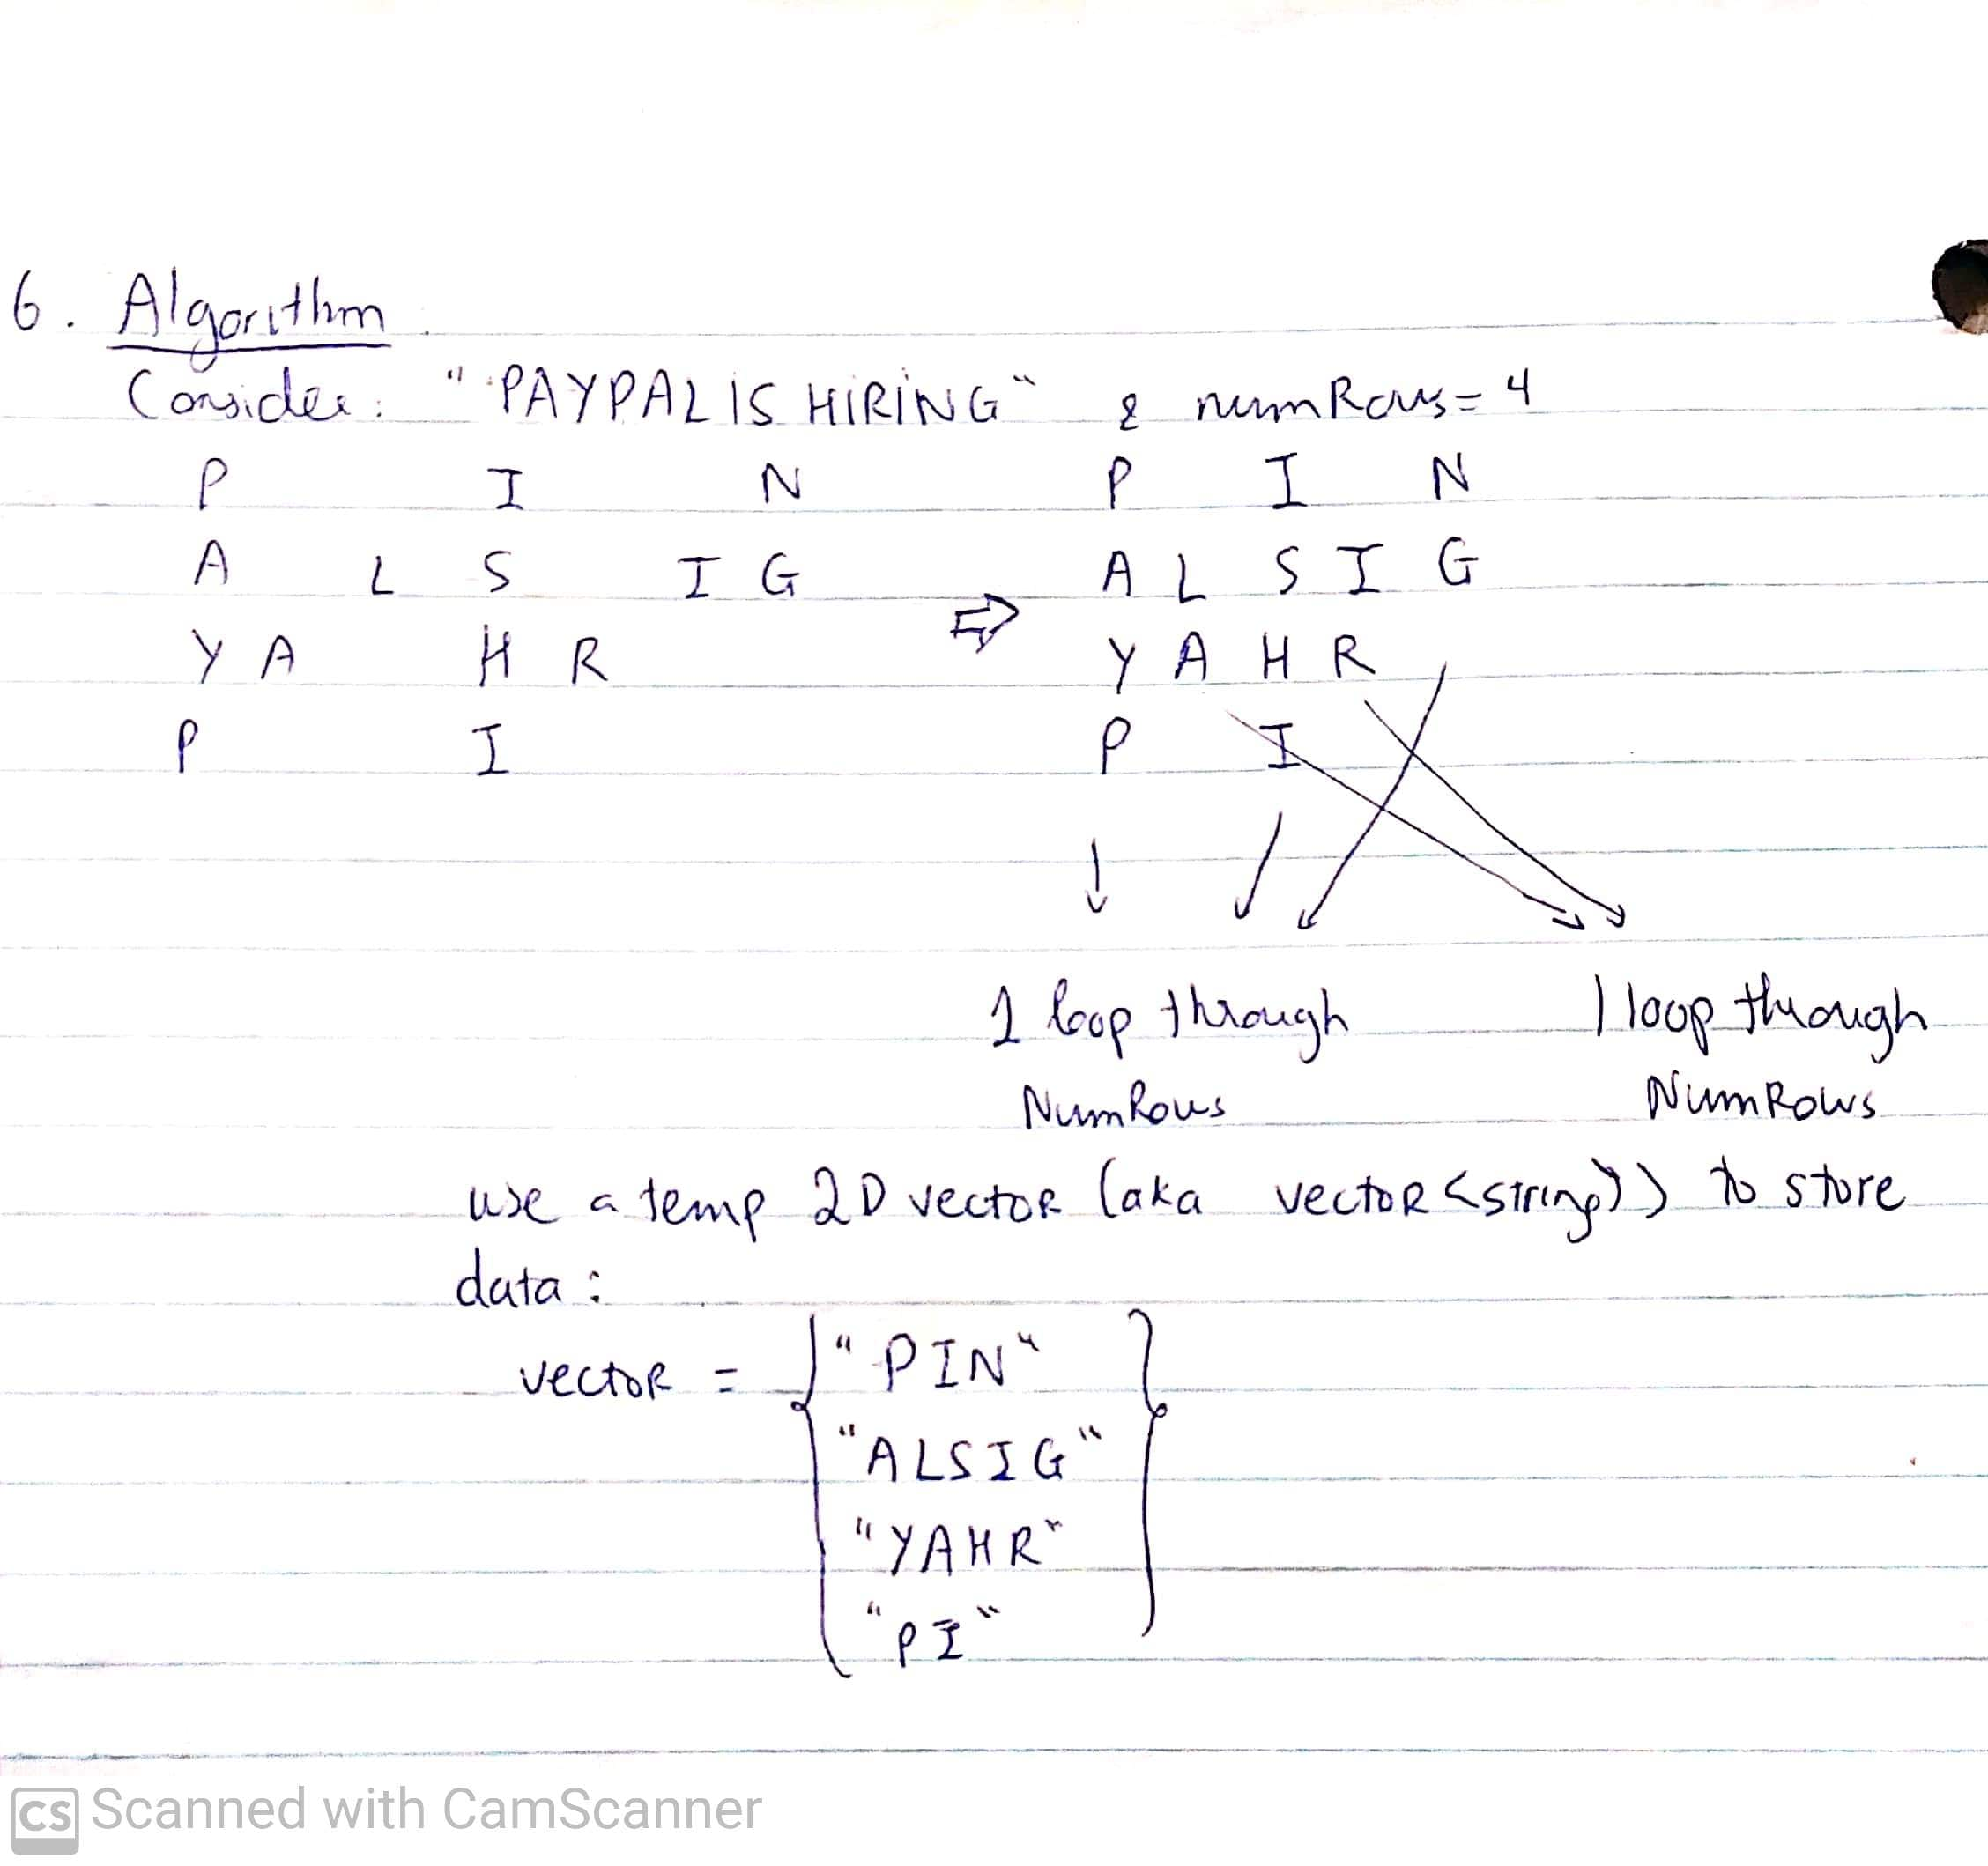 6. Algorithm
Consider: "PAYPALISHIRING" & numRows=4
P I N P I N
A L S I G ⇒ A L S I G
Y A H R Y A H R
P I P I
1 loop through 1 loop through
NumRows NumRows
use a temp 2D vector (aka vector<string>) to store
data:
vector = {"PIN"
"ALSIG"
"YAHR"
"PI"}
CS Scanned with CamScanner